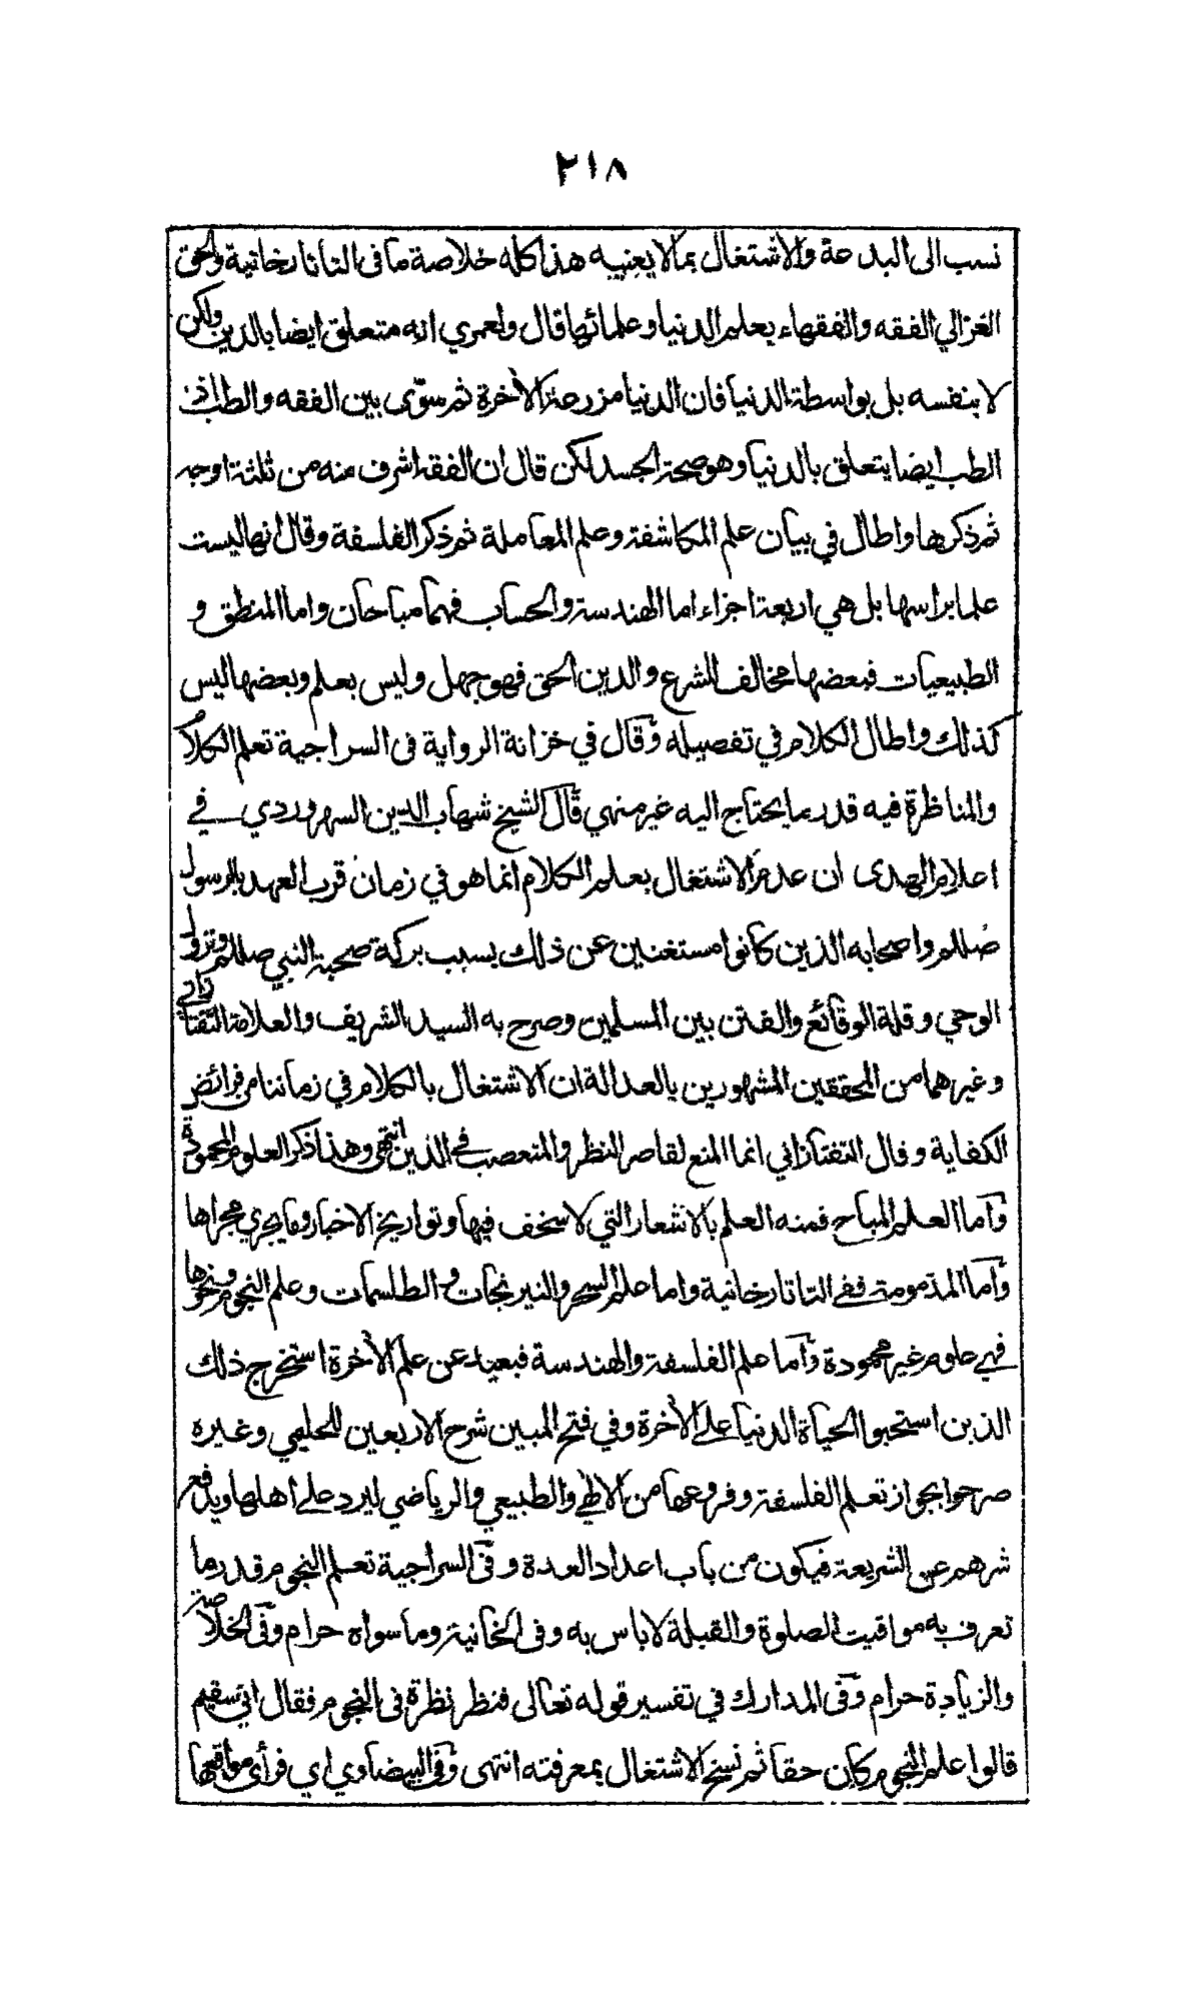 ٢١٨
نسب الى البدعة والاشتغال بما لا يعنيه هذا كله خلاصة ما فى التاتارخانية والحق
الغزالي الفقه والفقهاء بعلم الدنيا وعلمائها قال ولعمري انه متعلق ايضا بالدين ولكن
لا بنفسه بل بواسطة الدنيا فان الدنيا مزرعة الآخرة ثم سوّى بين الفقه والطب اذ
الطب ايضا يتعلق بالدنيا وهو صحة الجسد لكن قال ان الفقه اشرف منه من ثلثة اوجه
ثم ذكرها واطال في بيان علم المكاشفة وعلم المعاملة ثم ذكر الفلسفة وقال انها ليست
علما براسها بل هي اربعة اجزاء اما الهندسة والحساب فهما مباحان واما المنطق و
الطبيعيات فبعضها مخالف للشرع والدين الحق فهو جهل وليس بعلم وبعضها ليس
كذلك واطال الكلام في تفصيله وقال في خزانة الرواية فى السراجية تعلم الكلام
والمناظرة فيه قدر ما يحتاج اليه غير منهي قال الشيخ شهاب الدين السهروردي في
اعلام الهدى ان عدم الاشتغال بعلم الكلام انما هو في زمان قرب العهد بالرسول
صللم واصحابه الذين كانوا مستغنين عن ذلك بسبب بركة صحبة النبي صللم ونزول
الوحي وقلة الوقائع والفتن بين المسلمين وصرح به السيد الشريف والعلامة التفتازاني
وغيرهما من المحققين المشهورين بالعدالة ان الاشتغال بالكلام في زماننا من فرائض
الكفاية وقال التفتازاني انما المنع لقاصر النظر والمتعصب في الدين انتهى وهذا ذكر العلوم المحمودة
وأما العلم المباح فمنه العلم بالاشعار التي لا سخف فيها وتواريخ الاخبار وما يجري مجراها
وأما المذمومة ففى التاتارخانية واما علم السحر والنيرنجات والطلسمات وعلم النجوم ونحوها
فهي علوم غير محمودة وأما علم الفلسفة والهندسة فبعيد عن علم الآخرة استخرج ذلك
الذين استحبوا الحياة الدنيا على الآخرة وفي فتح المبين شرح الاربعين للحليمي وغيره
صرحوا بجواز تعلم الفلسفة وفروعها من الالهي والطبيعي والرياضي ليرد على اهلها ويدفع
شرهم عن الشريعة فيكون من باب اعداد العدة وفى السراجية تعلم النجوم قدر ما
تعرف به مواقيت الصلوة والقبلة لا باس به وفى الخانية وما سواه حرام وفى الخلاصة
والزيادة حرام وفى المدارك في تفسير قوله تعالى فنظر نظرة فى النجوم فقال اني سقيم
قالوا علم النجوم كان حقا ثم نسخ الاشتغال بمعرفته انتهى وفى البيضاوي اي فرأى مواقعها